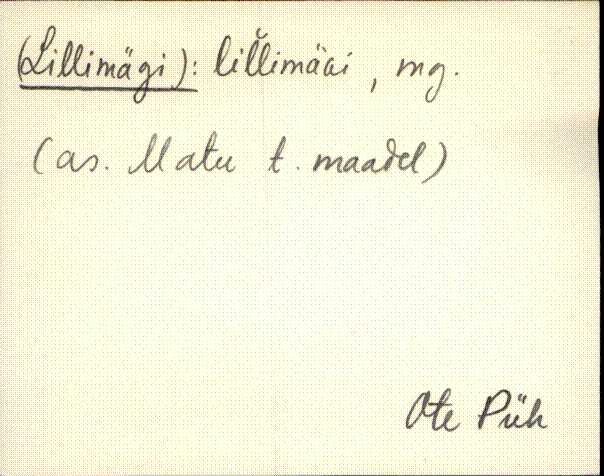 (Lillimägi): lil̆limäGi, mg.
(as. Matu t. maadel)
Ote Püh